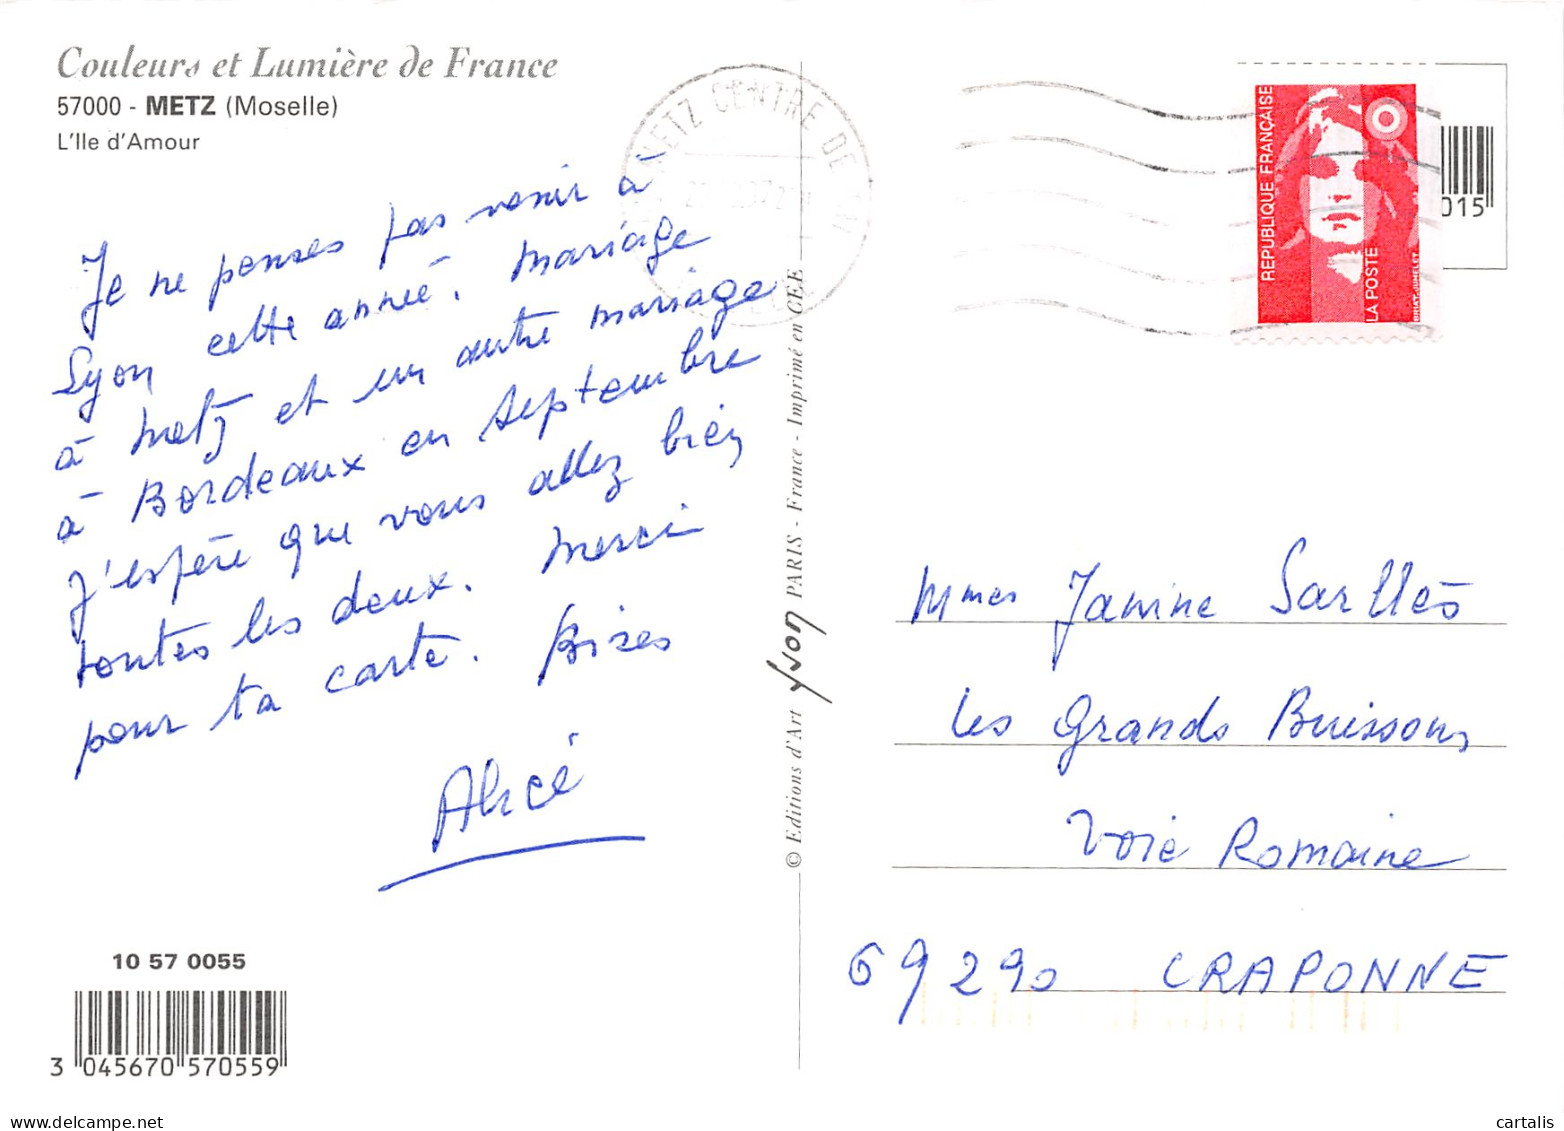 Couleurs et Lumière de France
57000 - METZ (Moselle)
L'Ile d'Amour
Je ne penses pas venir à
Lyon cette année. Mariage
à Metz et un autre mariage
à Bordeaux en septembre
J'espère que vous allez bien
toutes les deux. Merci
pour ta carte. Bises
Alice
10 57 0055
3 045670 570559
© Editions d'Art yvon PARIS - France - Imprimé en CEE
METZ CENTRE DE TRI
REPUBLIQUE FRANÇAISE
LA POSTE
BRIAT. JUMELET
015
Mmes Janine Sarlles
Les Grands Buissons
Voie Romaine
69290 CRAPONNE
cartalis